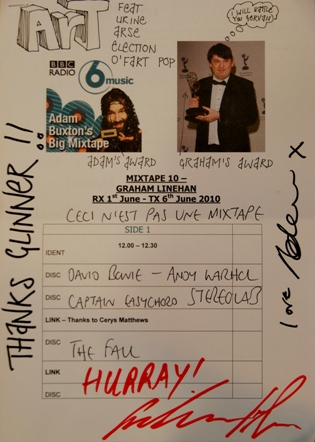 ART
FEAT
URINE
ARSE
ELECTION
O'FART POP
I WILL BATTLE
YOU GERVAIS!
BBC
RADIO
6 music
Adam
Buxton's
Big Mixtape
ADAM'S AWARD
GRAHAM'S AWARD
THANKS GLINNER!!
MIXTAPE 10 –
GRAHAM LINEHAN
RX 1st June - TX 6th June 2010
CECI N'EST PAS UNE MIXTAPE
SIDE 1
12.00 – 12.30
IDENT
DISC DAVID BOWIE – ANDY WARHOL
DISC CAPTAIN EASYCHORD STEREOLAB
LINK – Thanks to Cerys Matthews
DISC THE FALL
LINK HURRAY!
DISC
love Adam X